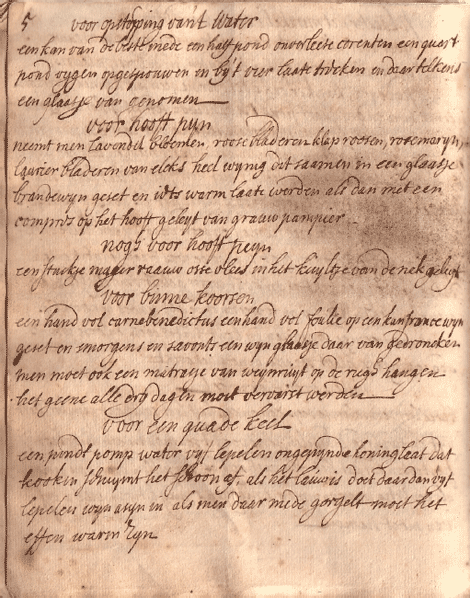 5 voor opstopping van't water
een kan van de beste mede een half pond onverleese corenten een quart
pond vygen opgespouwen in by't vier laate trecken en daar telkens
een glaasje van genomen
voor hooft pijn
neemt men lavendel bloemen, roose bladeren klaproosen, rosemaryn,
laurier bladeren van elcks heel wynig dit saamen in een glaasje
brandewyn geset en iets warm laate werden als dan met een
compris op het hooft geleyt van grauw pampier
nogh voor hooft peyn
een stuckje mager raauw osse vlees in het kuyltje van de nek geleyt
voor binne koorsen
een hand vol carnebenedictus een hand vol foulie op een kan france wyn
geset en smorgens en savonts een wyn glaasje daar van gedroncken
men moet ook een matrasje van wynruyt op de rugh hangen
het geene alle dry dagen moet ververst werden
voor een quade keel
een pinde pomp water vyf lepelen ongepynde honing laat dat
kooken schuymt het schoon af, als het lauw is doet daar dan vyf
lepelen wynasyn in als men daar mede gorgelt moet het
effen warm zyn